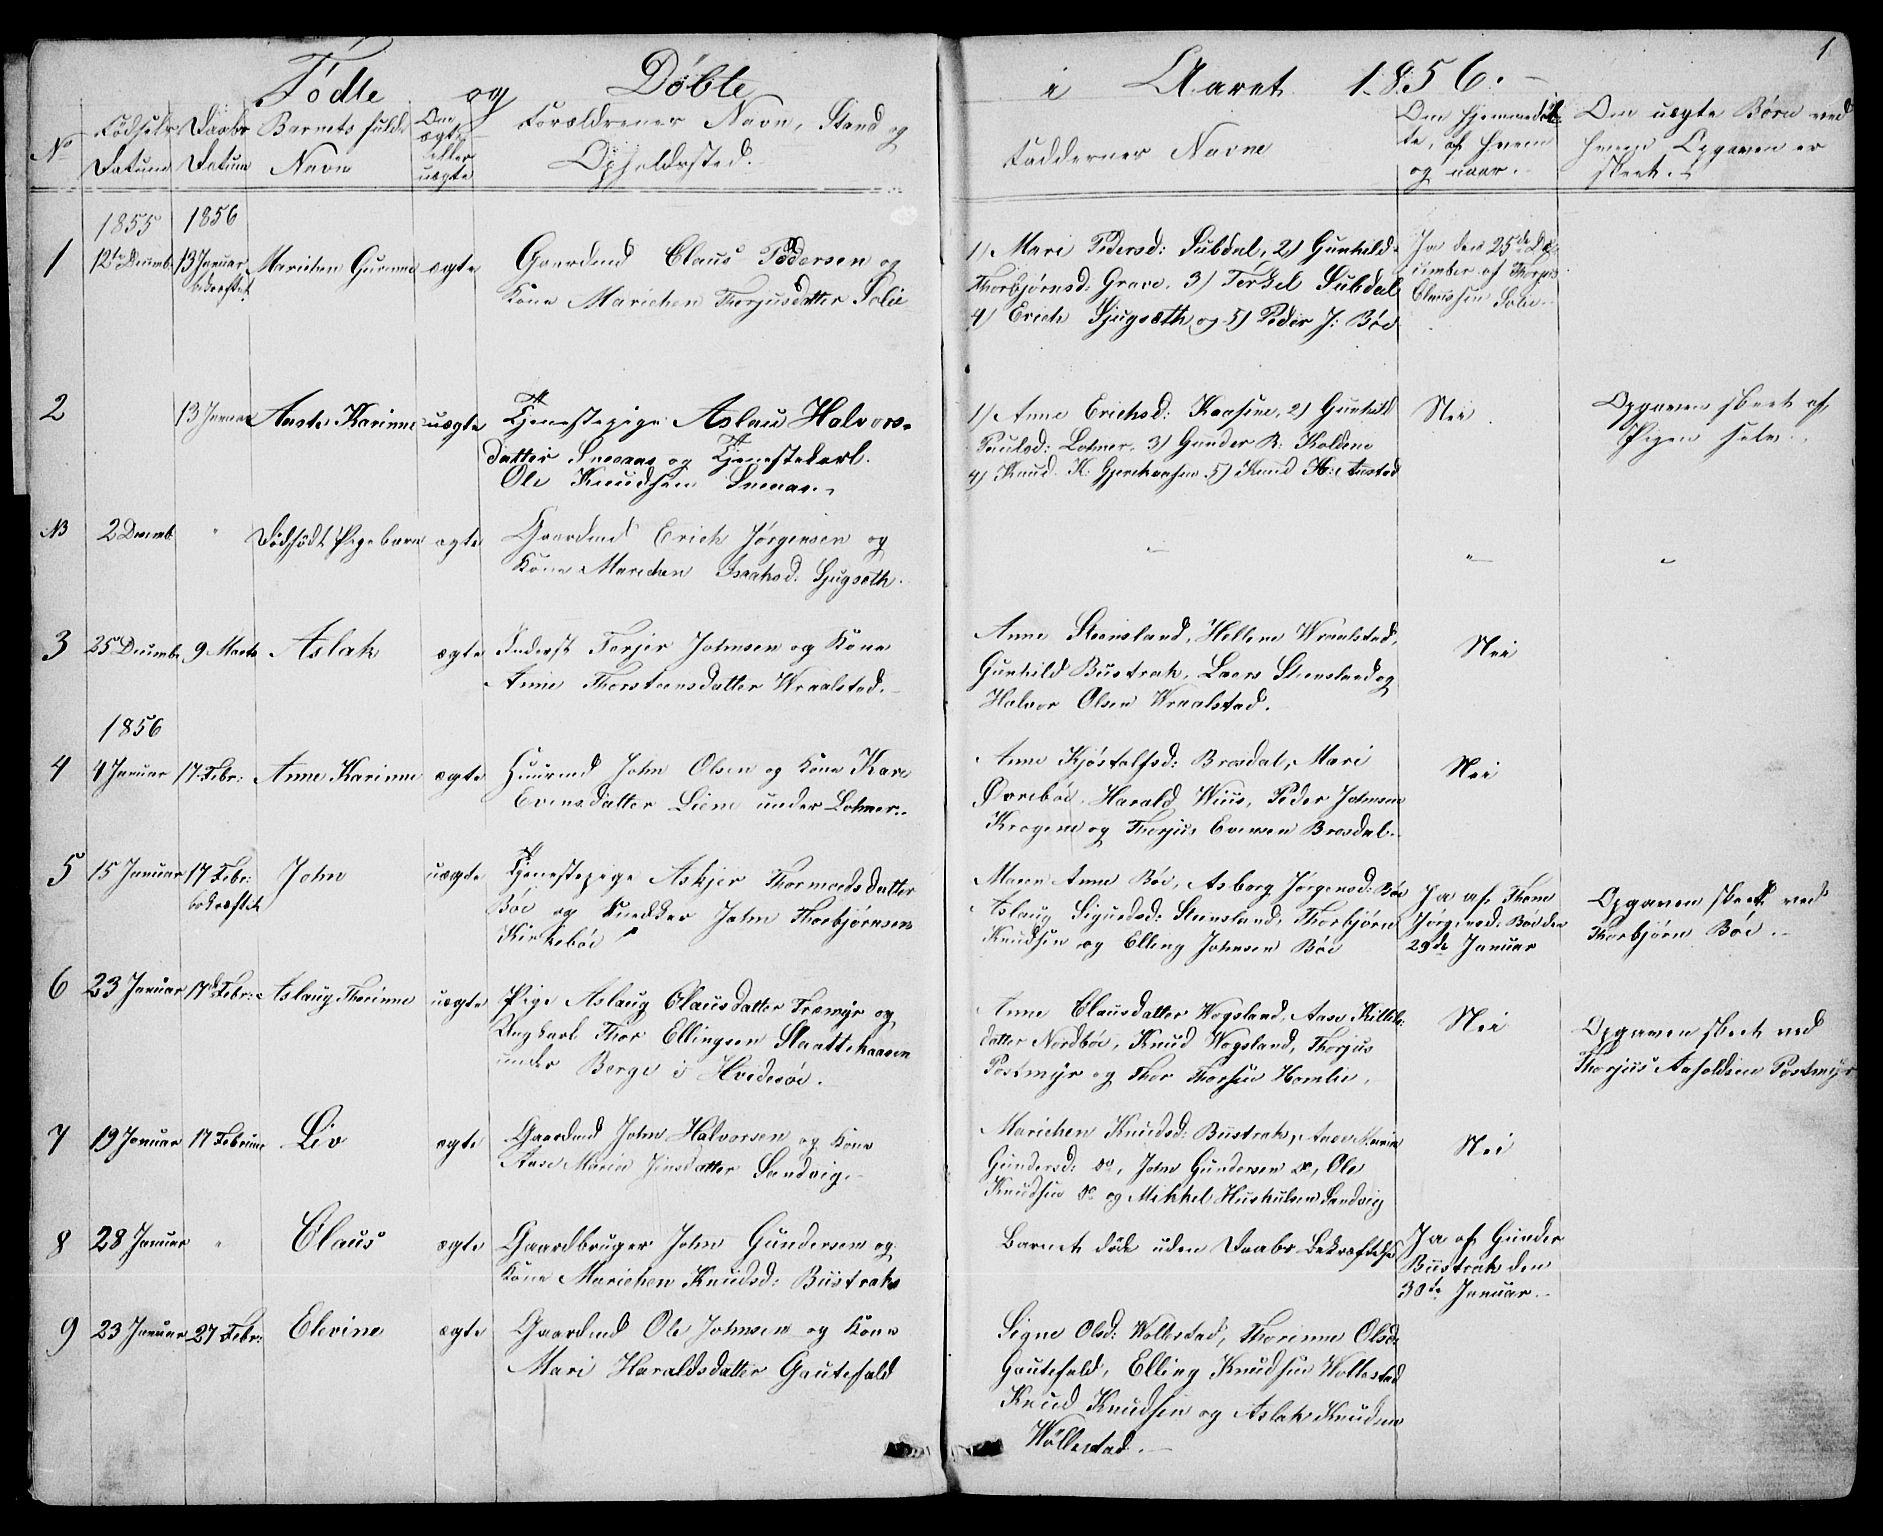 1
Födte og Döbte i Aaret 1856.
No
Födsels Datum
Daabs Datum
Barnets fulde Navn
Om ægte eller uægte
Forældrenes Navn, Stand og Opholdssted.
Faddernes Navne
Om hjemmedöbte, af hvem og naar.
Om uægte Börn ved hvem Opgaven er skeet.
1855 1856
1 12te Decemb. 13 Januar bekræftet Marichen Gurine ægte
Gaardmd Claus Pedersen og
Kone Marichen Thorjusdatter Solie
1) Mari Pedersd: Subdal, 2) Gunhild
Thorbjørnsd: Grave, 3) Terkel Subdal
4) Erich Sjugsæth og 5) Peder J: Böe
Ja den 25de December af Thorjus Claussen Solie.
2 13 Januar Aaste Karinne uægte
Tjenestepige Aslau Halvors-
datter Sneaas og Tjenestekarl
Ole Knudsen Sneaas.
1) Anne Erichsd: Kaasene, 2) Gunhild
Paulsd: Lohner, 3) Gunder R: Koldene
4) Knud K: 5) Knud K:
Nei
Opgaven skeet af
Pigen selv.
NB 2 Decemb. " Dödfödt Pigebarn ægte
Gaardmd Erich Jörgensen og
Kone Marichen Isaksd. Sjugsæth.
" " "
3 25 Decemb. 9 Marts Aslak ægte
Inderst Terjer Johnsen og Kone
Anne Thorsteensdatter Wraalstad.
Anne Steensland, Hellene Wraalstad,
Gunhild Bustrak, Laers Steensland og
Halvor Olsen Wraalstad.
Nei
1856
4 4 Januar 17 Febr: Anne Karinne ægte
Huusmd John Olsen og Kone Kare
Evensdatter Liene under Lohner.
Anne Kjöstolfsd: Brosdal, Mari
Övreböe, Harald Wiiis, Peder Johnsen
Krogene og Thorjus Evensen Brosdal.
Nei
5 15 Januar 17 Febr: bekræftet John uægte
Tjenestepige Askjer Thormodsdatter
Böe og Snedker John Thorbjörnsen
Kirkeböe
Maren Anne Böe, Asborg Jörgensd: Böe
Aslaug Sigurdsd: Steensland, Thorbjörn
Knudsen og Elling Johnsen Böe
Ja af Thone
Jörgensd: Böe den
29de Januar
Opgaven skeet ved
Thorbjörn Böe.
6 23 Januar 17 Febr: Aslaug Thorinne uægte
Pige Aslaug Clausdatter Tromyr og
Ungkarl Thor Ellingsen Slaattekaasen
under Berge i Hvidesöe.
Anne Clausdatter Wogsland, Aase Killils-
datter Nordböe, Knud Wogsland, Thorjus
Postmyr og Thor Thorsen Homlie.
Nei
Opgaven skeet ved
Thorjus Postmyr
7 19 Januar 17 Februar Liv ægte
Gaardmd John Halvorsen og Kone
Aase Marie Jensdatter Sandvig.
Marichen Knudsd: Bustrak, Aase Maria
Gundersd: do, John Gundersen do, Ole
Knudsen do og Mikkel Sandvig
Nei
8 28 Januar " Claus ægte
Gaardbruger John Gundersen og
Kone Marichen Knudsd: Bustrak
Barnet döde uden Daabs Bekræftelse
Ja af Gunder
Bustrak den
30te Januar.
9 23 Januar 27 Febr: Elevine ægte
Gaardmd Ole Johnsen og Kone
Mari Haraldsdatter Gautefald
Signe Olsd: Wollestad, Thorinne Olsd:
Gautefald, Elling Knudsen Wollestad
Knud Knudsen og Aslak Knudsen
Wöllestad.